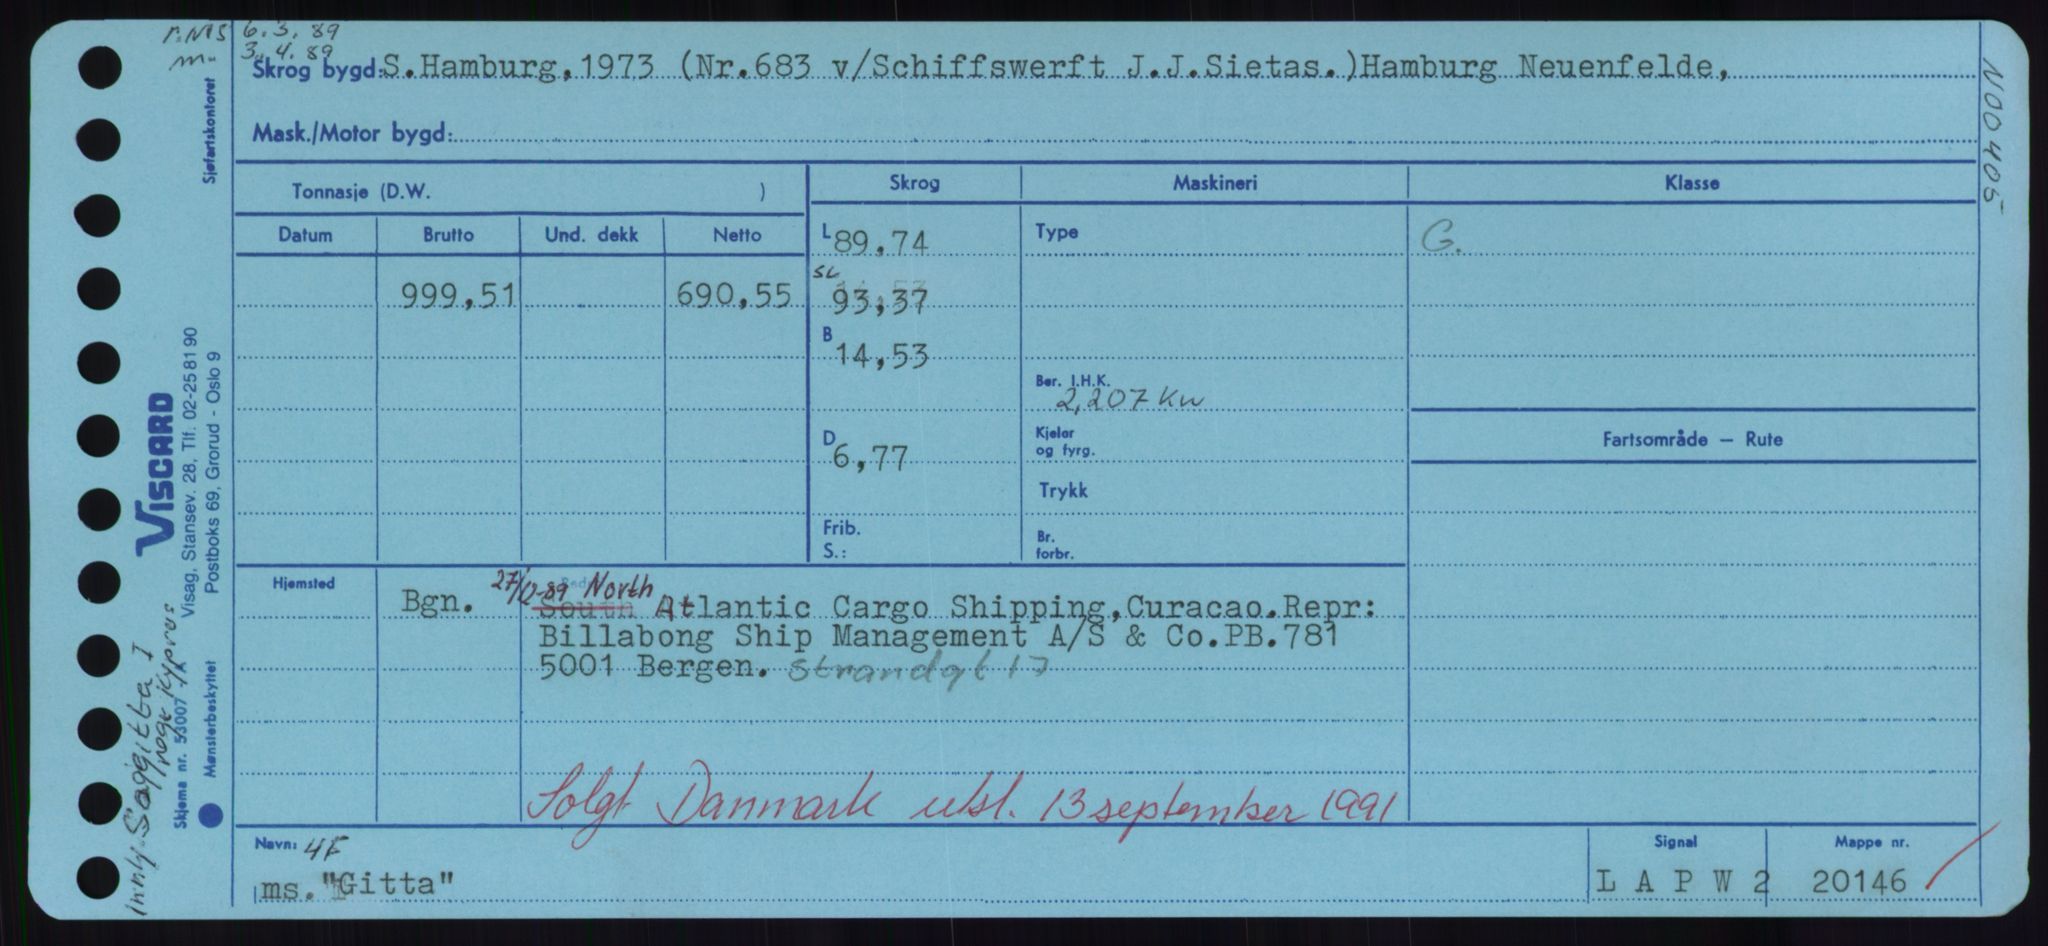 r.NIS 6.3.89
m. 3.4.89
Skrog bygd: S.Hamburg, 1973 (Nr.683 v/Schiffswerft J.J.Sietas.)Hamburg Neuenfelde,
Mask./Motor bygd:
N00405
Sjøfartskontoret
Tonnasje (D.W. )
Skrog Maskineri Klasse
Datum Brutto Und. dekk Netto
L 89,74 Type G.
999,51 690,55 SL 93,37
B 14,53
Ber. I.H.K. 2,207 Kw
D 6,77 Kjeler og fyrg.
Fartsområde — Rute
Trykk
Frib.
S.:
Br. forbr.
VISCARD
Visag, Stansev. 28, Tlf. 02-25 81 90
Postboks 69, Grorud - Oslo 9
Hjemsted Bgn. 27/12-89 North
South Atlantic Cargo Shipping,Curacao.Repr:
Billabong Ship Management A/S & Co.PB.781
5001 Bergen. Strandgt 17
Solgt Danmark utsl. 13 september 1991
Skjema nr. 53007 /A
Mønsterbeskyttet
Saggitta I
regr Kypros
Navn: 4F
ms. "Gitta"
Signal
L A P W 2
Mappe nr.
20146